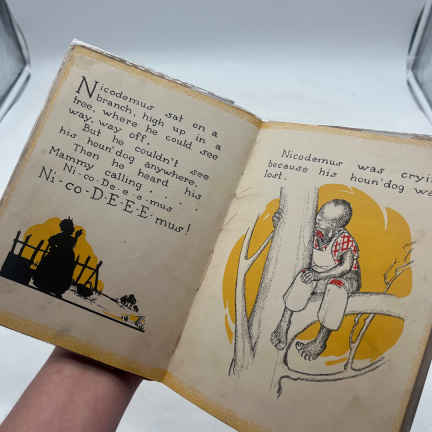 Nicodemus sat on a
branch, high up in a
tree, where he could see
way, way off.
But he couldn't see
his houn'dog anywhere.
Then he heard his
Mammy calling . . . .
Ni-co-De-e-e-mus . . .
Ni-co-D-E-E-E-mus!
Nicodemus was cryi
because his houn'dog we
lost.